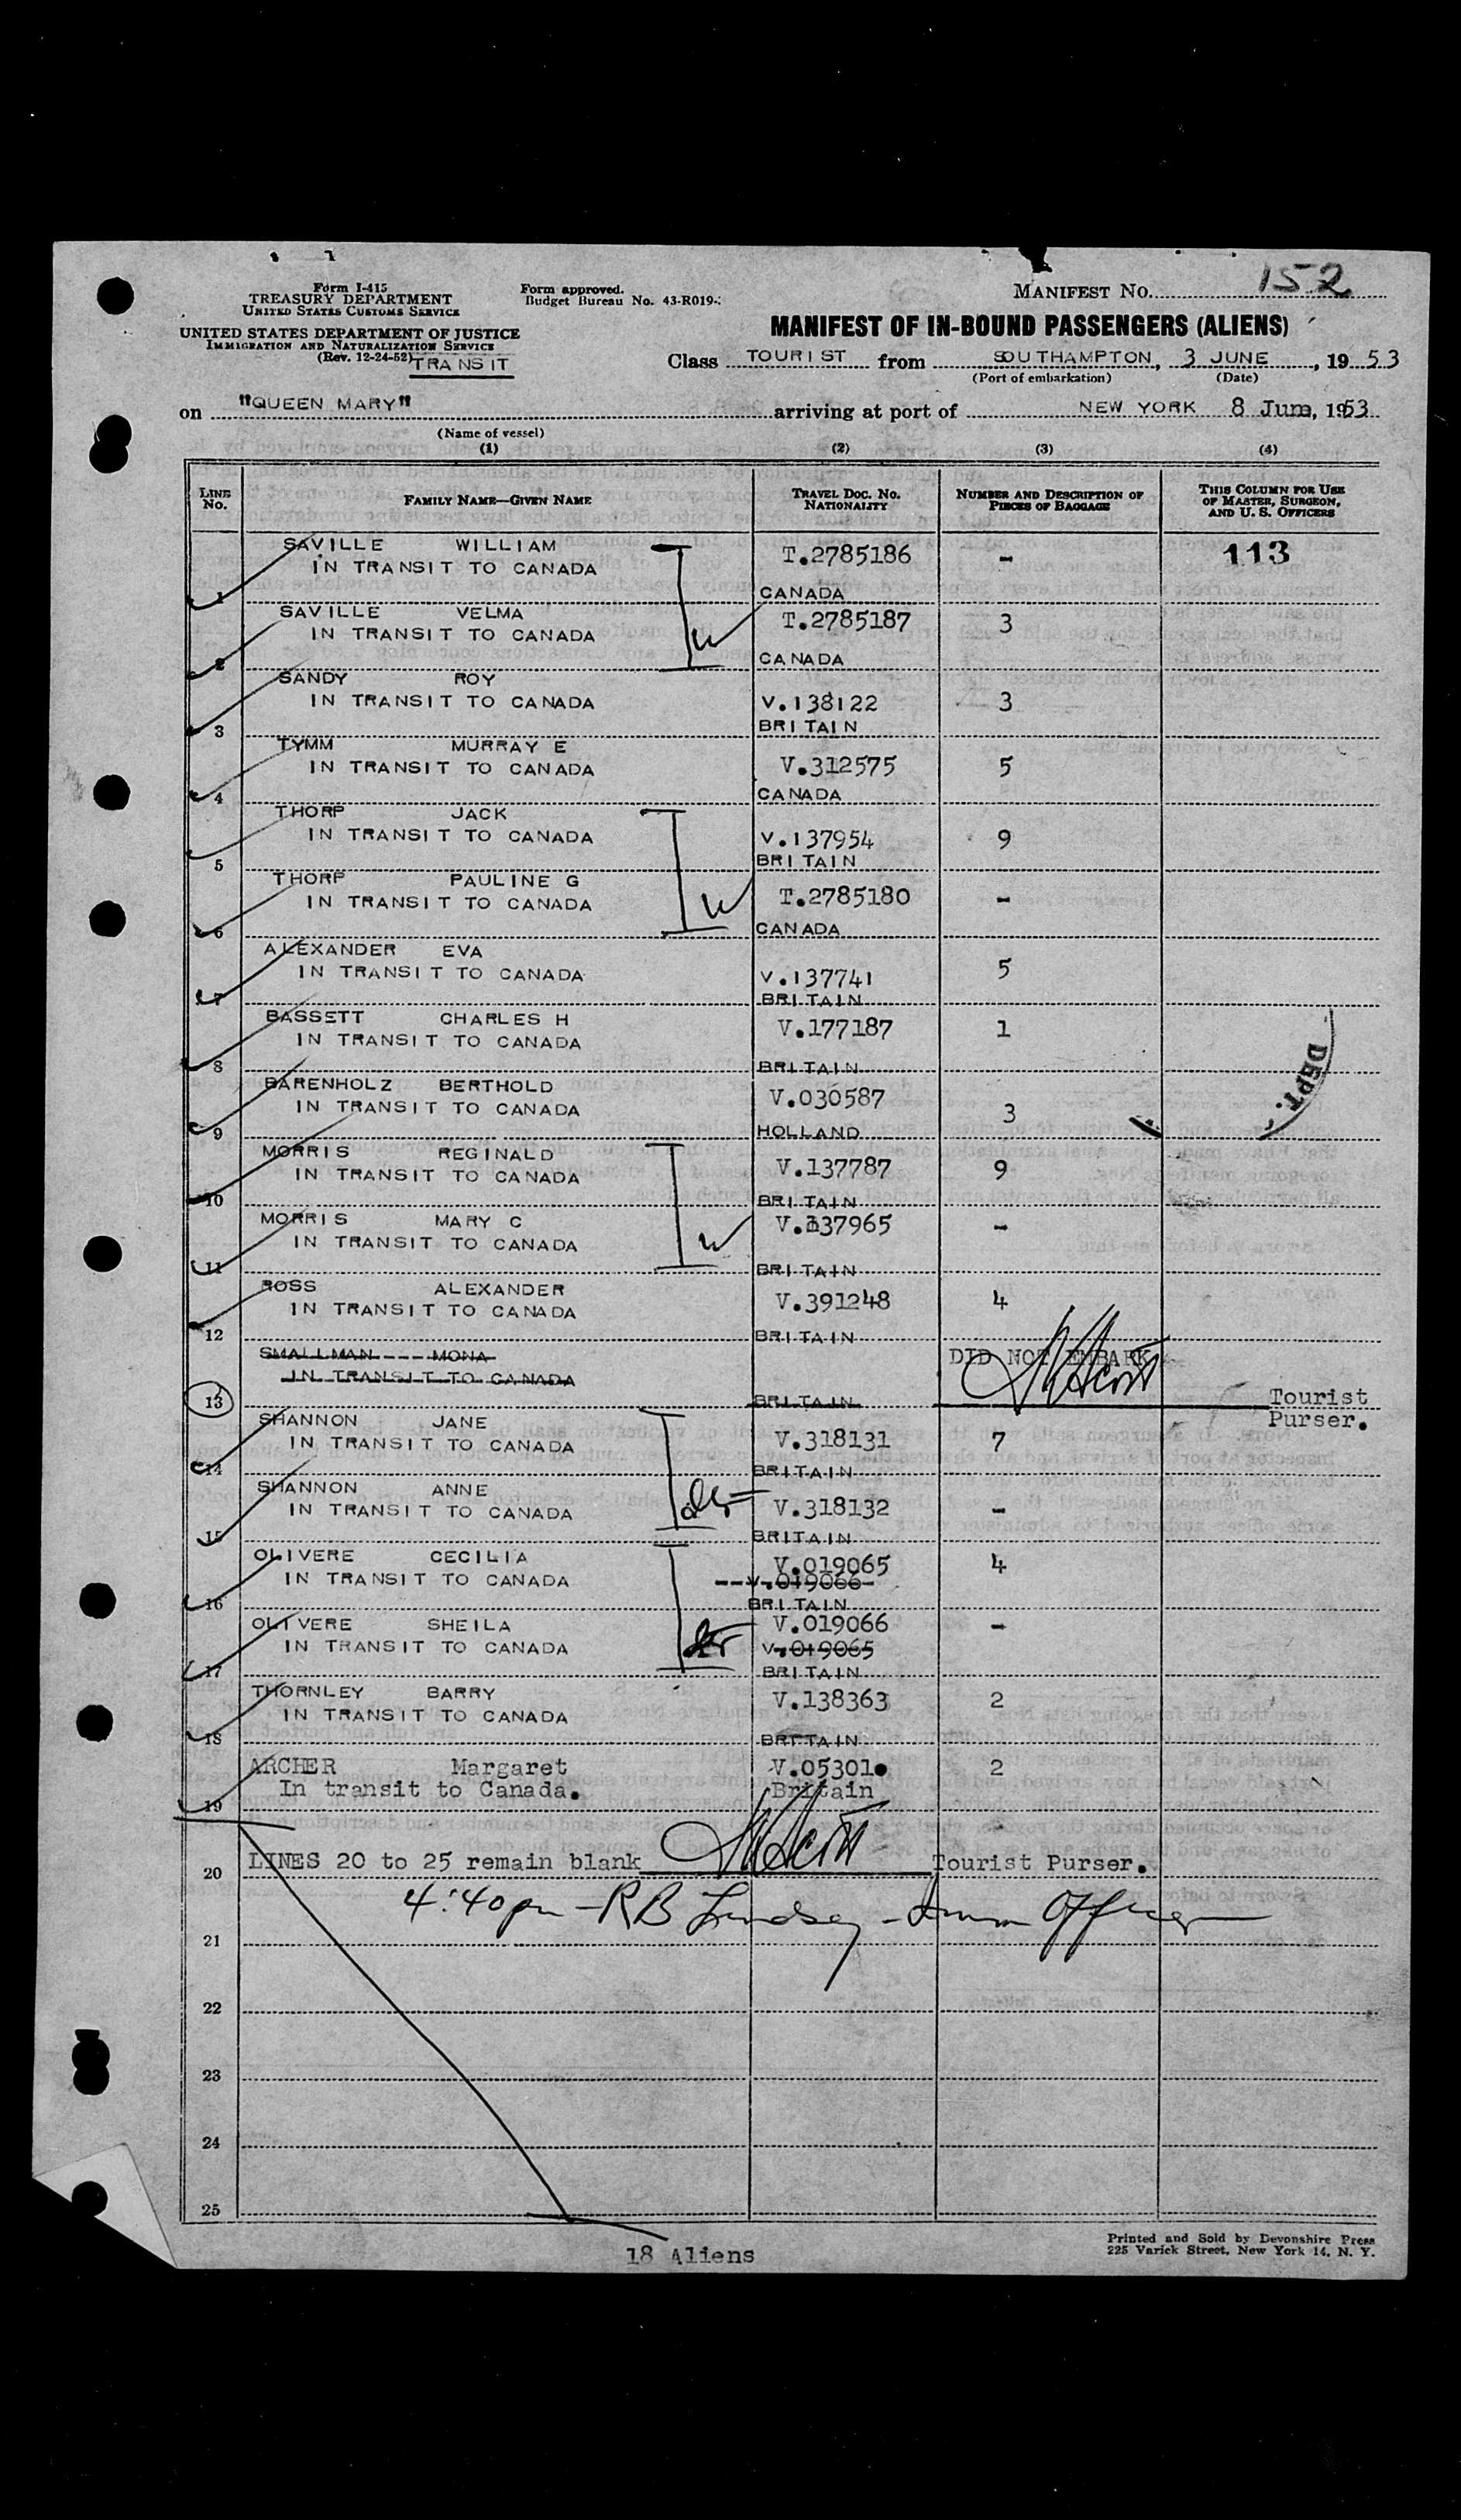 Form I-415
TREASURY DEPARTMENT
UNITED STATES CUSTOMS SERVICE
Form approved.
Budget Bureau No. 43-R019-
MANIFEST NO. 152
UNITED STATES DEPARTMENT OF JUSTICE
IMMIGRATION AND NATURALIZATION SERVICE
(Rev. 12-24-52) TRANSIT
MANIFEST OF IN-BOUND PASSENGERS (ALIENS)
Class TOURIST from SOUTHAMPTON, 3 JUNE, 1953
(Port of embarkation) (Date)
on "QUEEN MARY" arriving at port of NEW YORK 8 June, 1953
(Name of vessel)
(1) (2) (3) (4)
LINE No. FAMILY NAME—GIVEN NAME TRAVEL DOC. NO. NATIONALITY NUMBER AND DESCRIPTION OF PIECES OF BAGGAGE THIS COLUMN FOR USE OF MASTER, SURGEON, AND U. S. OFFICERS
SAVILLE WILLIAM T.2785186 - 113
IN TRANSIT TO CANADA
1 CANADA
SAVILLE VELMA T.2785187 3
IN TRANSIT TO CANADA
2 CANADA
SANDY ROY
IN TRANSIT TO CANADA V.138122 3
3 BRITAIN
TYMM MURRAY E
IN TRANSIT TO CANADA V.312575 5
4 CANADA
THORP JACK
IN TRANSIT TO CANADA V.137954 9
5 BRITAIN
THORP PAULINE G
IN TRANSIT TO CANADA T.2785180 -
6 CANADA
ALEXANDER EVA
IN TRANSIT TO CANADA V.137741 5
7 BRITAIN
BASSETT CHARLES H V.177187 1
IN TRANSIT TO CANADA
8 BRITAIN
BARENHOLZ BERTHOLD V.030587
IN TRANSIT TO CANADA 3
9 HOLLAND
DEPT.
MORRIS REGINALD V.137787 9
IN TRANSIT TO CANADA
10 BRITAIN
MORRIS MARY C V.137965 -
IN TRANSIT TO CANADA
11 BRITAIN
ROSS ALEXANDER V.391248 4
IN TRANSIT TO CANADA
12 BRITAIN
SMALLMAN MONA DID NOT EMBARK
IN TRANSIT TO CANADA
13 BRITAIN Tourist
Purser.
SHANNON JANE V.318131 7
IN TRANSIT TO CANADA
14 BRITAIN
SHANNON ANNE
IN TRANSIT TO CANADA V.318132 -
15 BRITAIN
OLIVERE CECILIA V.019065 4
IN TRANSIT TO CANADA V.019066
16 BRITAIN
OLIVERE SHEILA V.019066 -
IN TRANSIT TO CANADA V.019065
17 BRITAIN
THORNLEY BARRY V.138363 2
IN TRANSIT TO CANADA
18 BRITAIN
ARCHER Margaret V.05301 2
In transit to Canada. Britain
19
20 LINES 20 to 25 remain blank Tourist Purser.
4:40 pm - RB Lindsey - Imm Officer
21
22
23
24
25
18 Aliens
Printed and Sold by Devonshire Press
225 Varick Street, New York 14, N. Y.